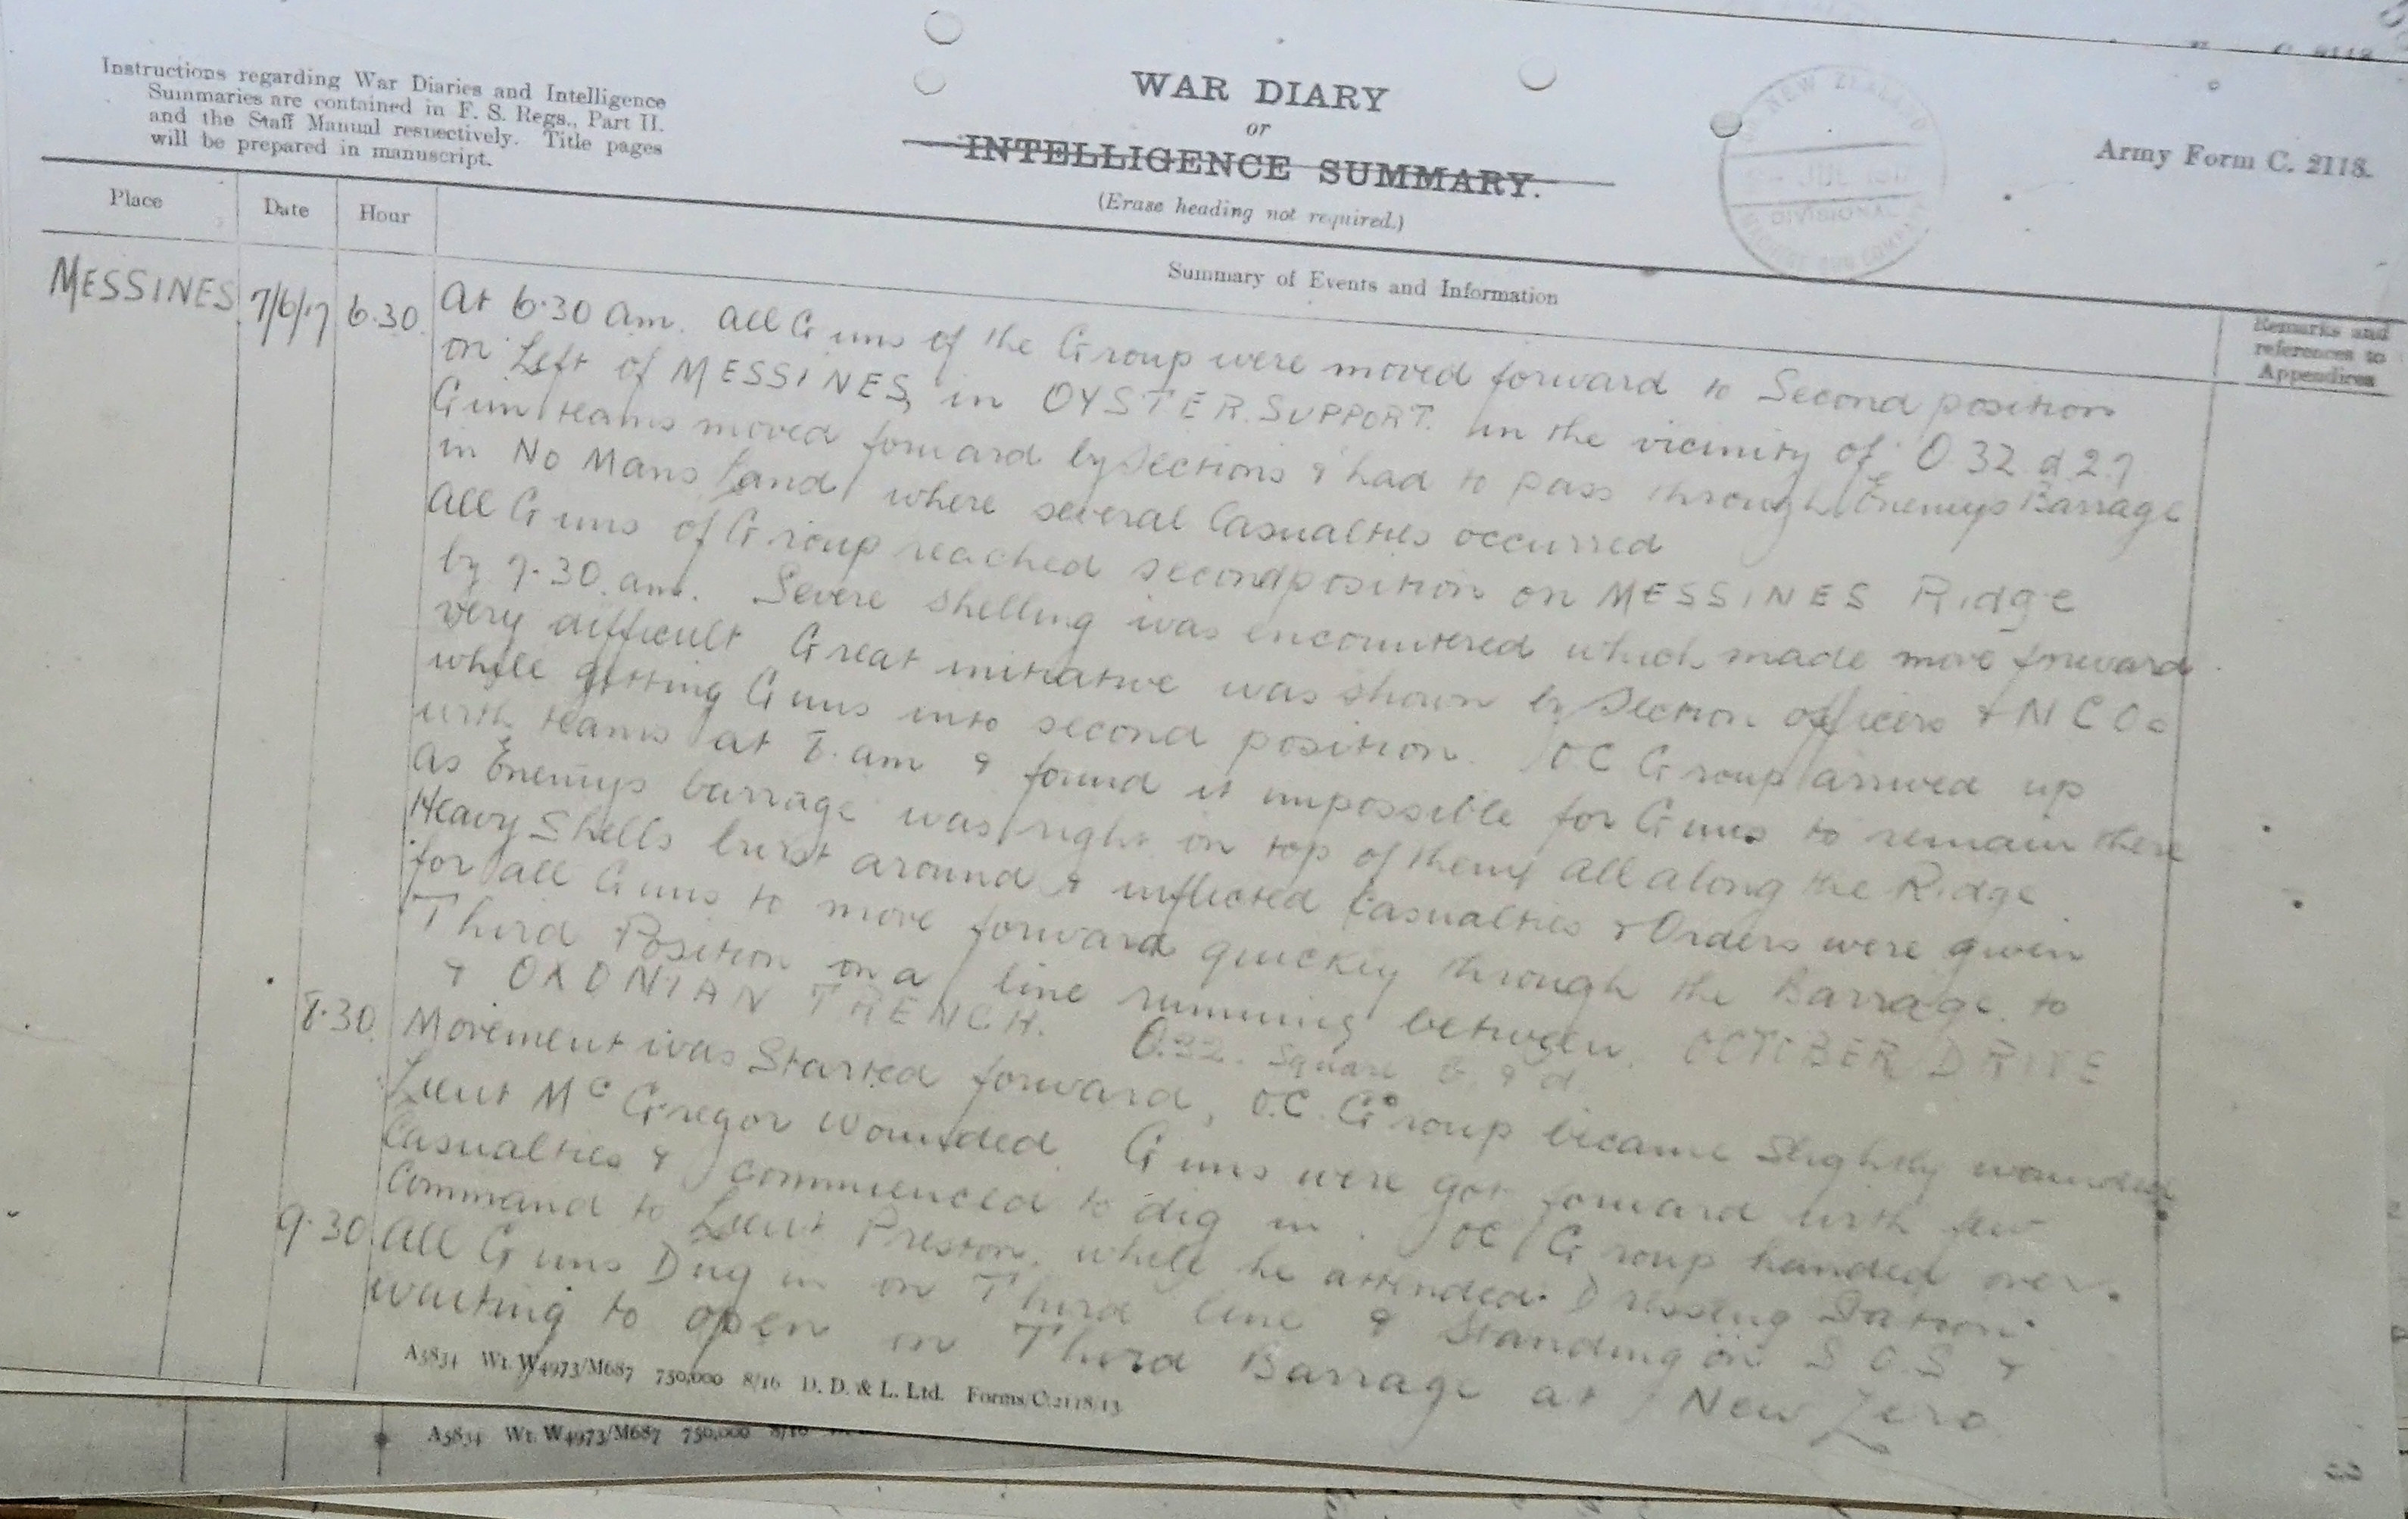 Instructions regarding War Diaries and Intelligence
Summaries are contained in F. S. Regs., Part II.
and the Staff Manual respectively. Title pages
will be prepared in manuscript.
WAR DIARY
or
INTELLIGENCE SUMMARY.
(Erase heading not required.)
NEW ZEALAND
DIVISIONAL
Army Form C. 2118.
Place
Date
Hour
Summary of Events and Information
Remarks and
references to
Appendices
MESSINES 7/6/17 6.30.
At 6.30 am. All Guns of the Group were moved forward to Second position
on Left of MESSINES, in OYSTER SUPPORT. in the vicinity of O 32 d 2.7
Gun teams moved forward by Sections & had to pass through Enemys Barrage
in No Mans Land where several Casualties occurred
All Guns of Group reached second position on MESSINES Ridge
by 7.30. am. Severe shelling was encountered which made move forward
very difficult Great initiative was shown by Section officers & NCOs
while getting Guns into second position. OC Group arrived up
with teams at 8. am & found it impossible for Guns to remain there
as Enemys barrage was right on top of them & all along the Ridge
Heavy Shells burst around & inflicted Casualties & Orders were given
for all Guns to move forward quickly through the Barrage. to
Third Position on a line running between. OCTOBER DRIVE
& OXONIAN TRENCH. O.32. Square & d
8.30. Movement was Started forward, O.C. Group became Slightly wounded
Lieut McGregor Wounded. Guns were got forward with few
Casualties & commenced to dig in. OC Group handed over
Command to Lieut Preston. while he attended Dressing Station.
9.30. All Guns Dug in on Third line & Standing on S O S &
waiting to open in Third Barrage at New Zero
A5834 Wt. W4973/M687 750,000 8/16 D. D. & L. Ltd. Forms/C.2118/13
A5834 Wt. W4973/M687 750,000 8/16